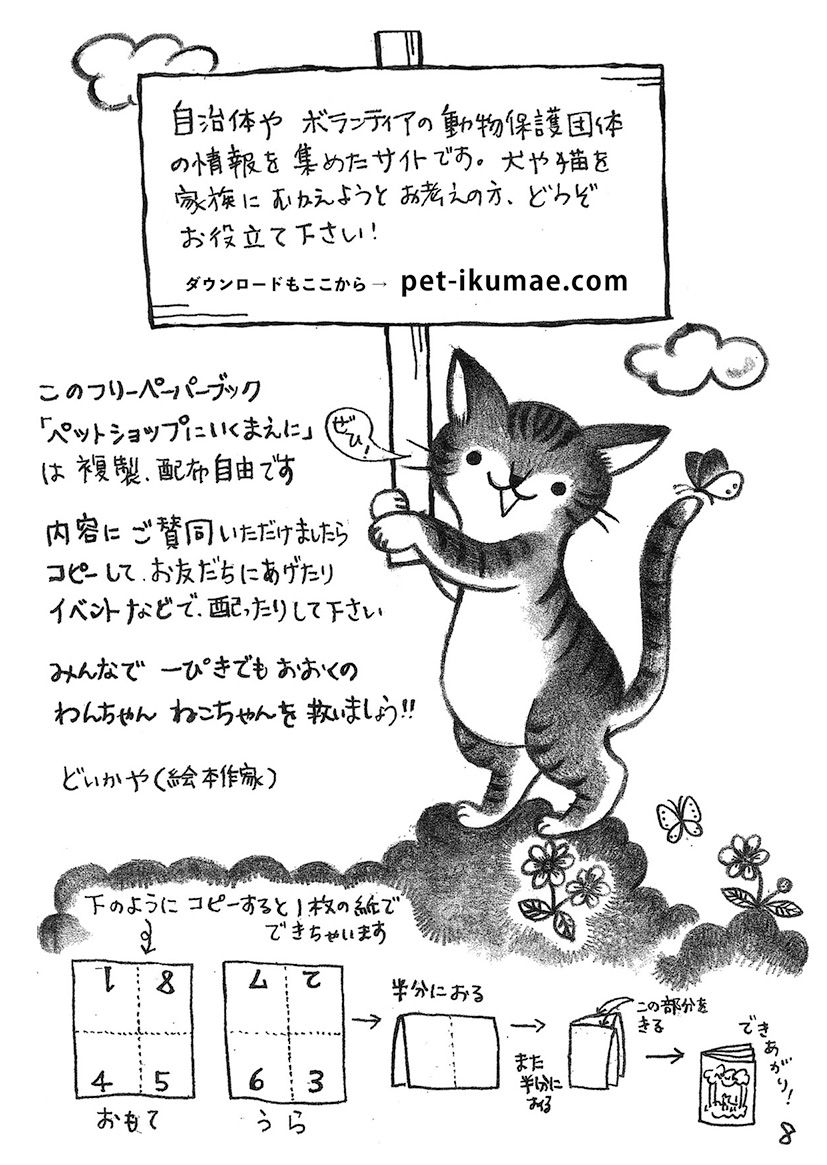 自治体や ボランティアの動物保護団体
の情報を 集めたサイトです。犬や猫を
家族に むかえようと お考えの方、どうぞ
お役立て下さい!
ダウンロードもここから→ pet-ikumae.com
このフリーペーパーブック
「ペットショップにいくまえに」
は 複製、配布自由です
ぜひ!
内容に ご賛同いただけましたら
コピーして、お友だちにあげたり
イベントなどで、配ったりして下さい
みんなで 一ぴきでも おおくの
わんちゃん ねこちゃんを 救いましょう!!
どいかや(絵本作家)
下のように コピーすると1枚の紙で
できちゃいます
1 8
4 5
おもて
7 2
6 3
うら
半分におる
また
半分に
おる
この部分を
きる
できあがり!
8